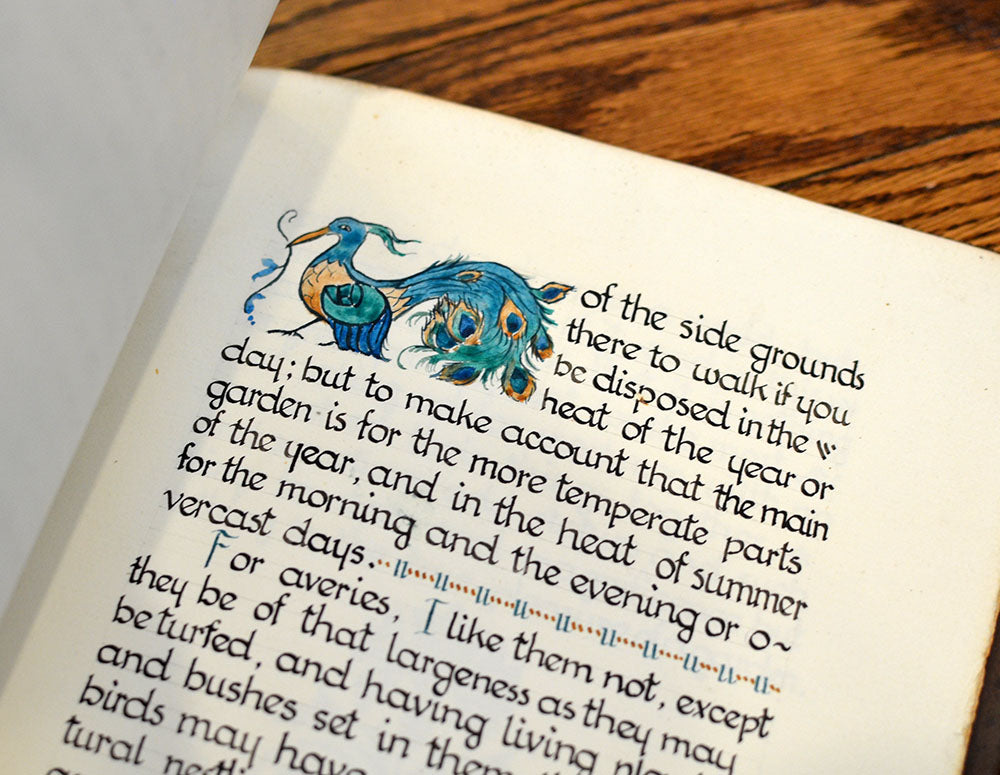 of the side grounds
there to walk if you
be disposed in the
heat of the year or
day; but to make account that the main
garden is for the more temperate parts
of the year, and in the heat of summer
for the morning and the evening or o~
vercast days.
For averies, I like them not, except
they be of that largeness as they may
be turfed, and having living
and bushes set in them
birds may have
tural